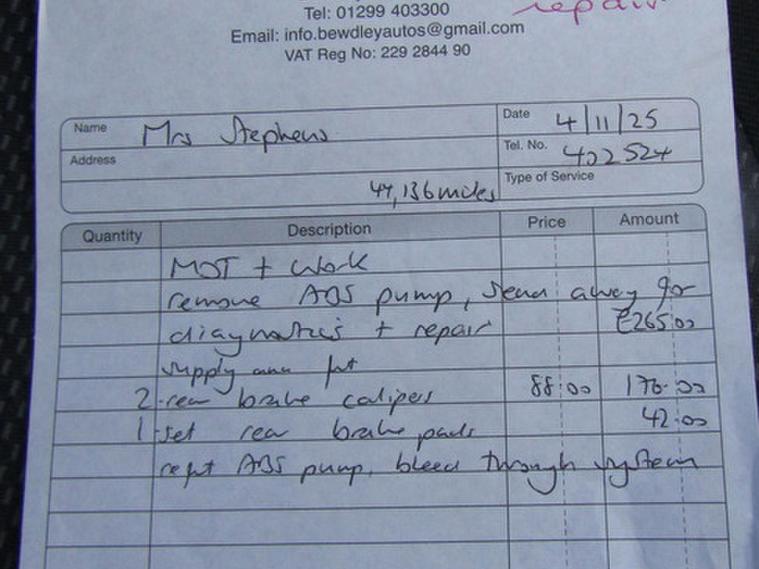 Tel: 01299 403300
repair
Email: info.bewdleyautos@gmail.com
VAT Reg No: 229 2844 90
Name Mrs Stephens Date 4/11/25
Address Tel. No. 402524
44,136 miles Type of Service
Quantity Description Price Amount
MOT + work
remove ABS pump, send away for
diagnostics + repair £265:00
supply and fit
2 rear brake calipers 88:00 176:00
1 set rear brake pads 42:00
refit ABS pump, bleed through system